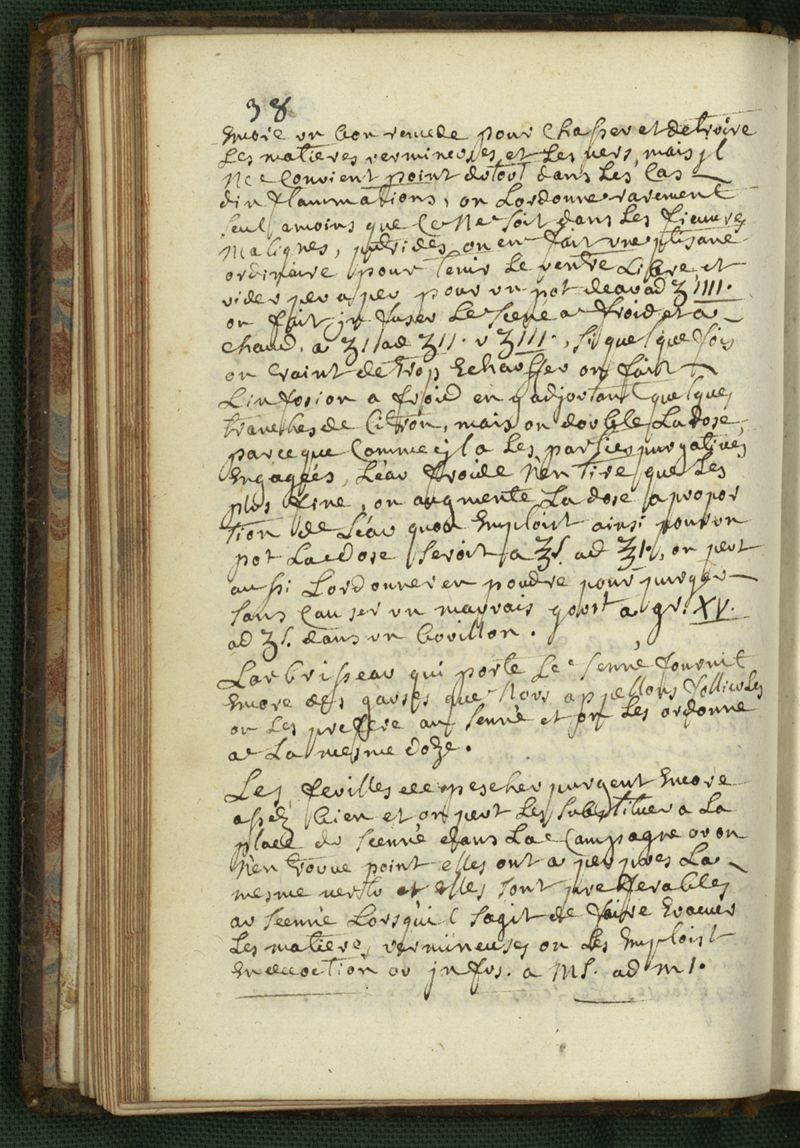 38
Encore un bon remede pour chasser et detruire
Les matieres vermineuses et Les vers, mais jl
Ne Convient point dutout dans Les Cas
dinflammations, on Lordonne rarement
seul amoins que Ce Ne soit dans Les fieuvres
Malignes, putrides on en fait une ptisane
ordinaire pour tenir Le ventre Libre et
vider peu a peu pour un pot deau ad ʒ IIII.
on fait jnfuser Le Sene a froid et a
chaud. a ʒ I ad ʒ II. v ʒ III., si quelque fois
on craint de trop Echauffer on fait
L'infusion a froid en y adjoutant quelques
tranches de Citron, mais on double La dose,
parceque Comme ejl a Les parties purgatives
Engagées, L'eau froide N'en tire que Les
plus fine, on augmente La dose a propor
tion de L'eau quon Emploit ainsi pour un
pot La dose seroit a ʒ s. ad ʒ I., on peut
aussi Lordonner en poudre pour purger
sans Causer un mauvais goust a gr. XV.
ad ʒ s. dans un bouillon.
Larbrisseau qui porte Le Senné fournit
Encore des gousses que Nous appellons follicules
on Les prefere au Senné et on Les ordonne
a La mesme doze.
Les feuilles de pescher purgent Encore
assez bien et on peut Les substituer a La
place du Seenné dans La Campagne ou on
N'en trouve point elles ont a peu pres La
mesme vertu et elles sont prefferables
au Seenné Lorsqu'il s'agit de faire Evacuer
Les matieres vermineuses on Les Emploist
En decoction ou jnfus. a M s. ad m I.